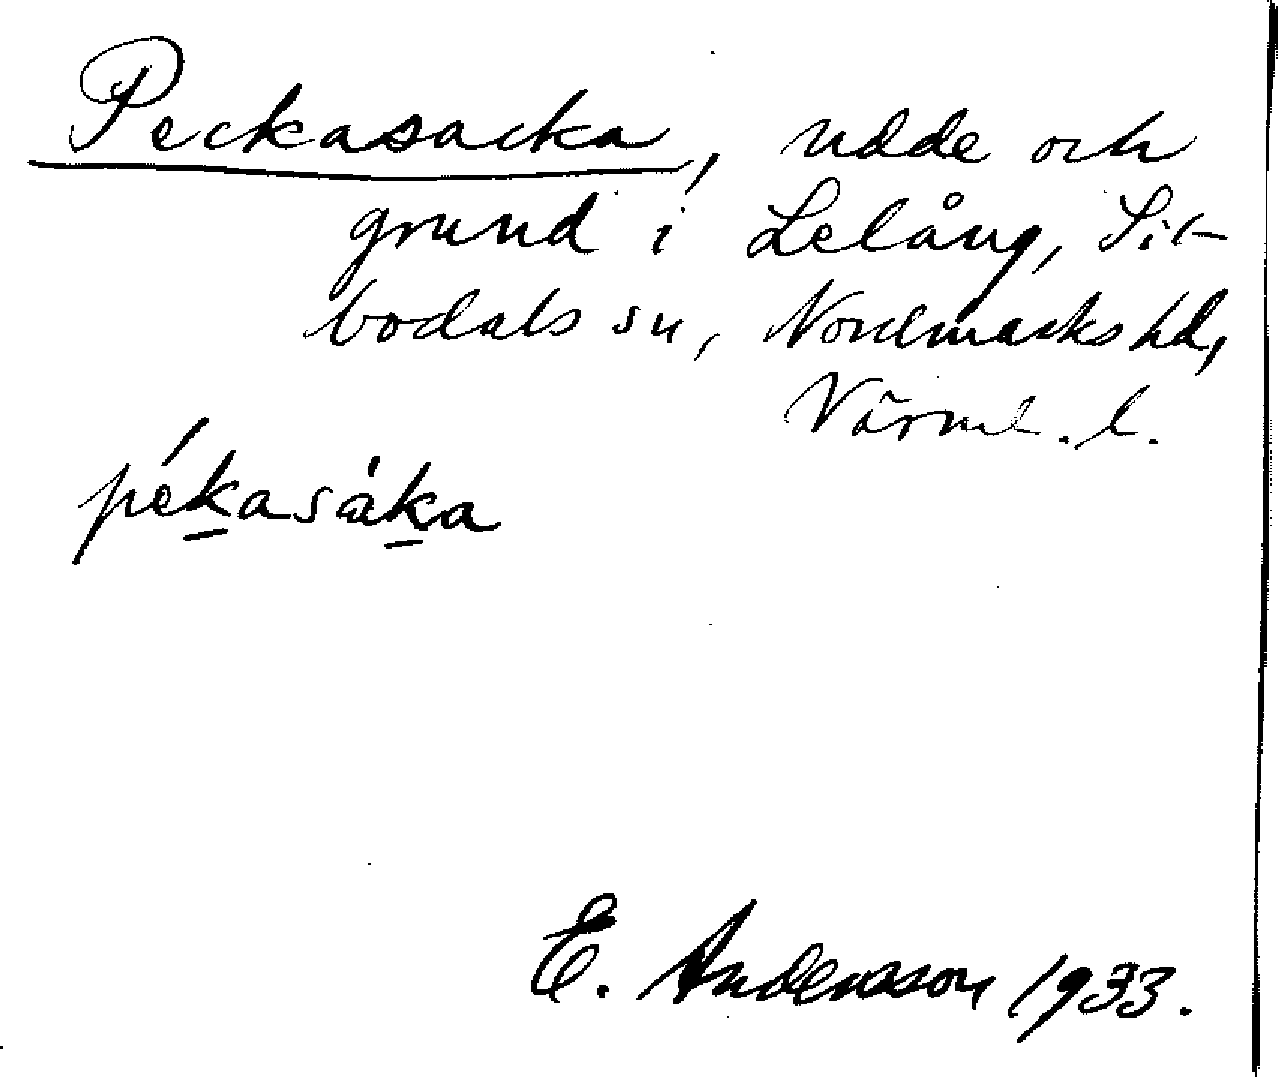 Peckasacka, udde och
grund i Lelång, Sil-
bodals sn, Nordmarks hd,
Värml. l.
pékasàka
E. Andersson 1933.